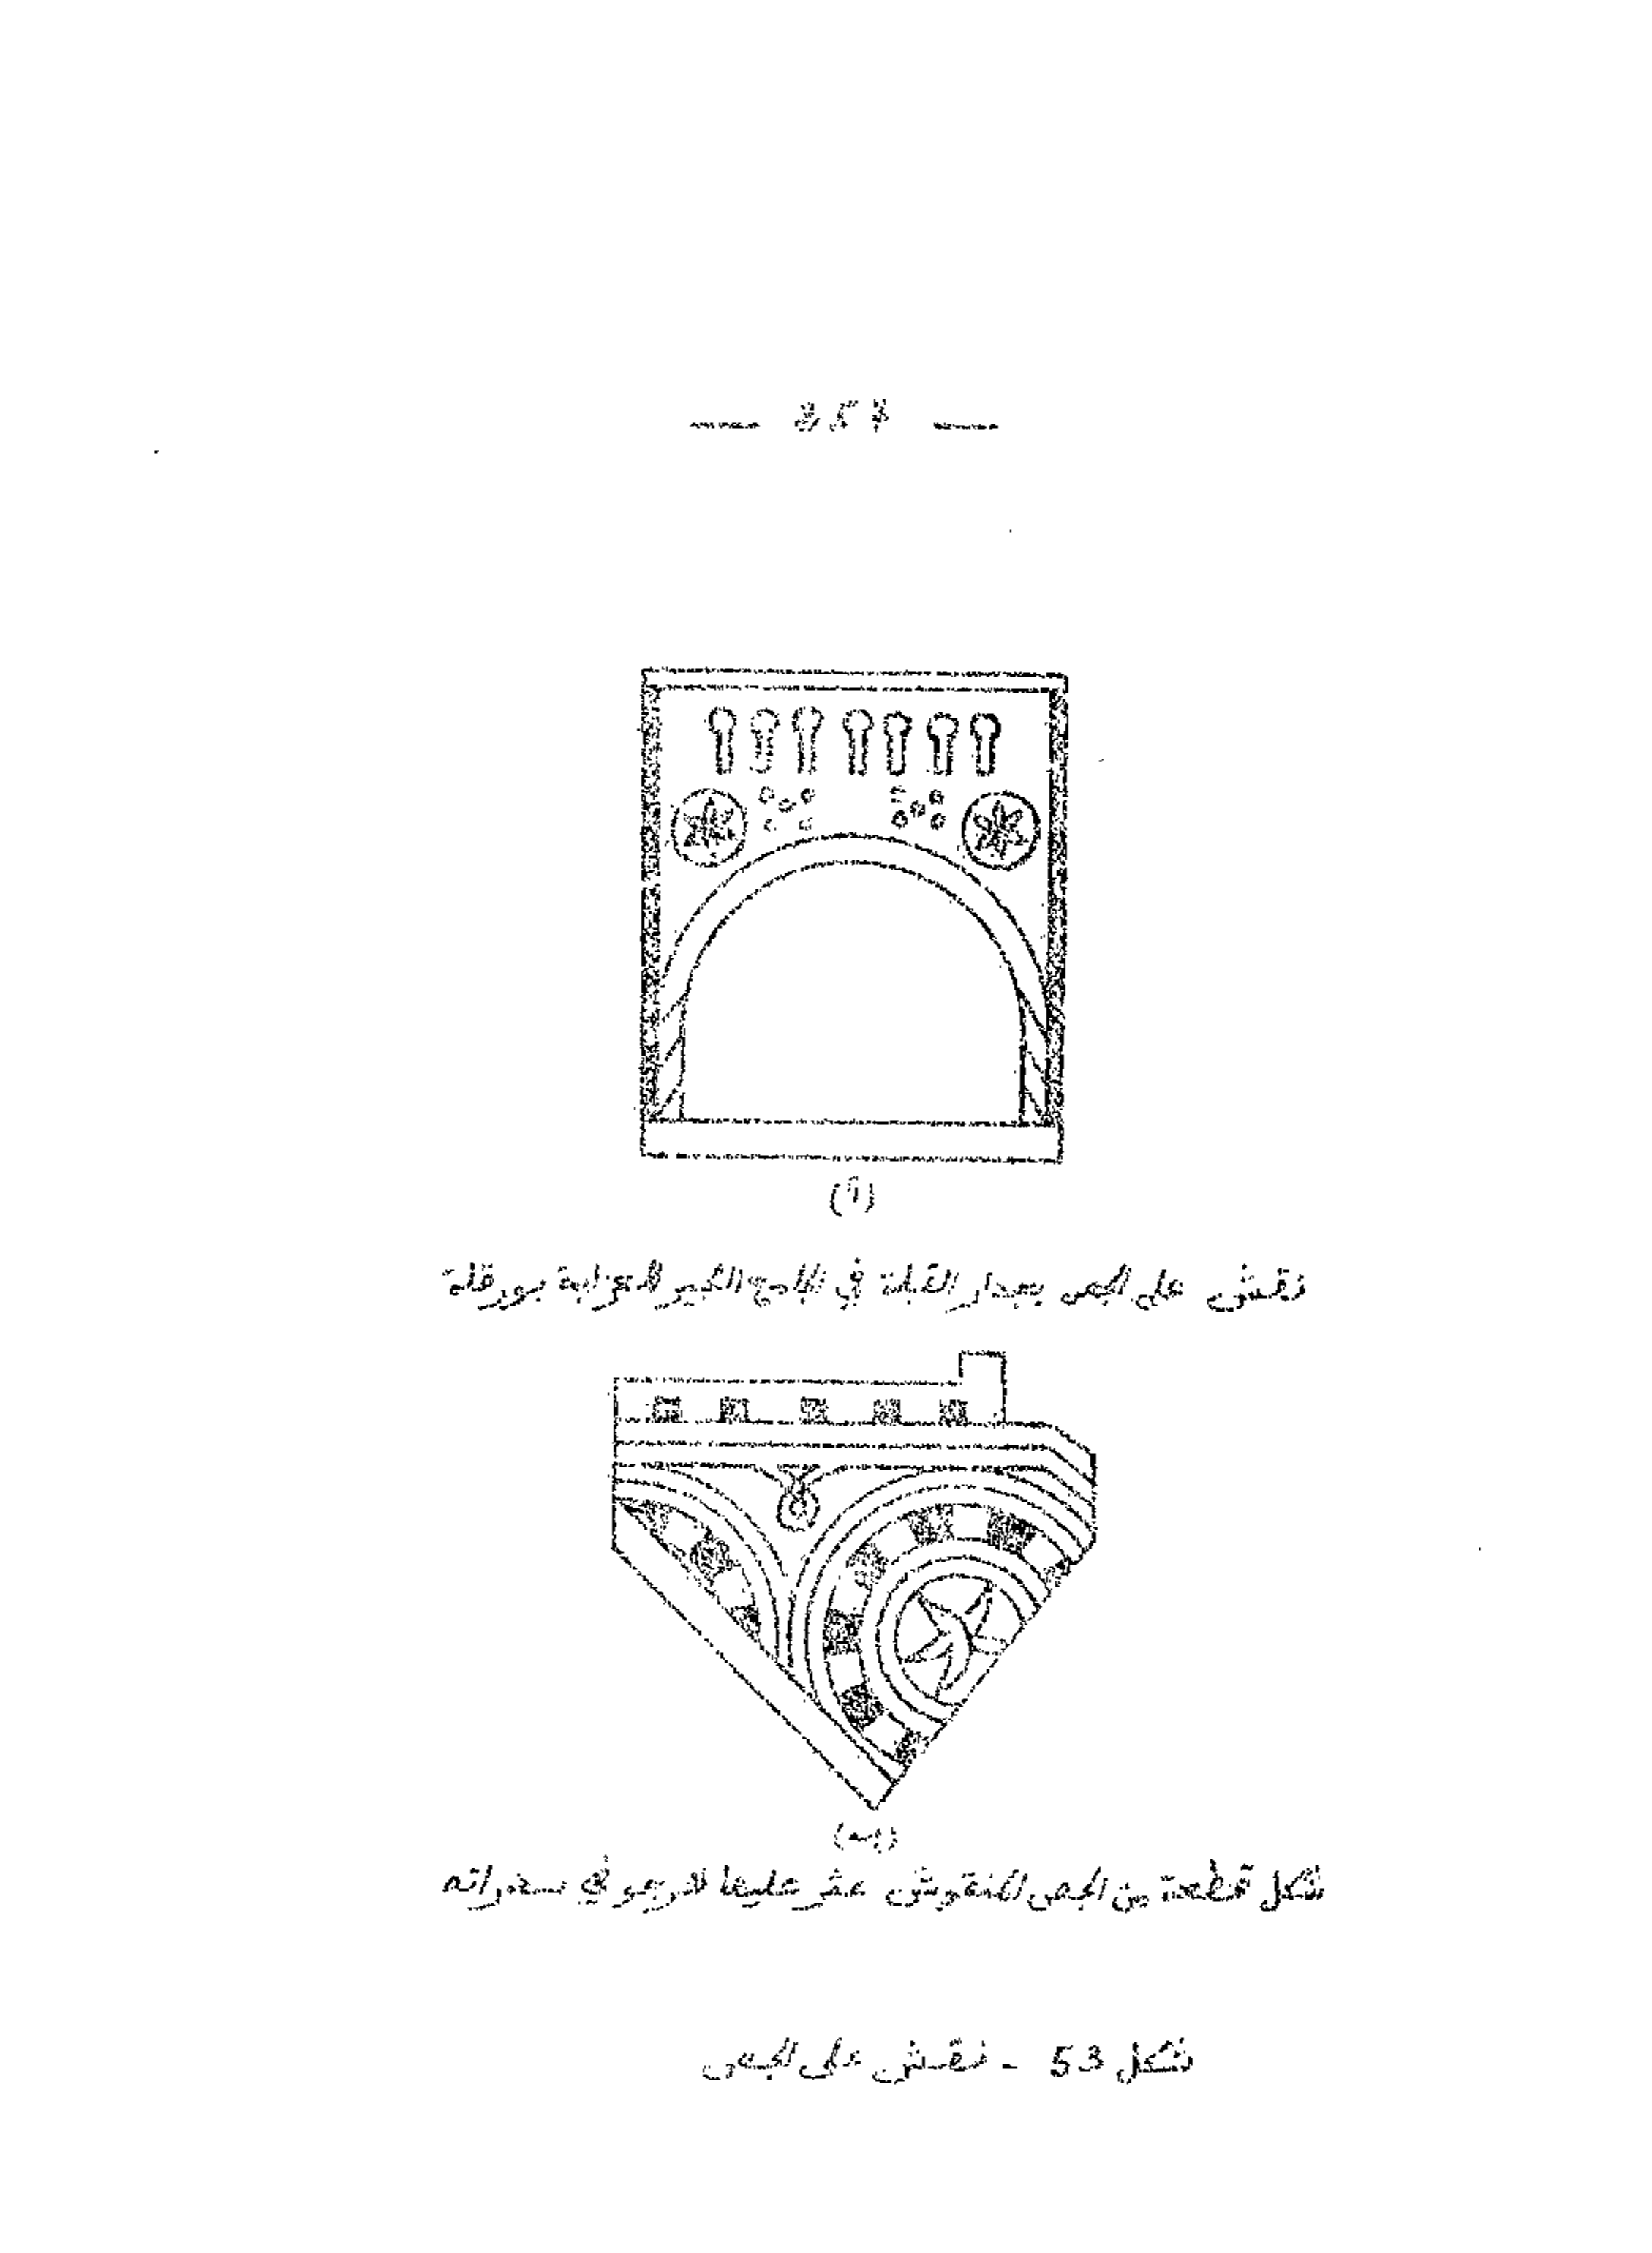 (أ)
نقش على الجص بجدار القبلة في الجامع الكبير للعزابة بورقلة
(ب)
شكل قطعة من الجص المنقوش عثر عليها لارجو في سدراته
شكل 53 - نقش على الجص